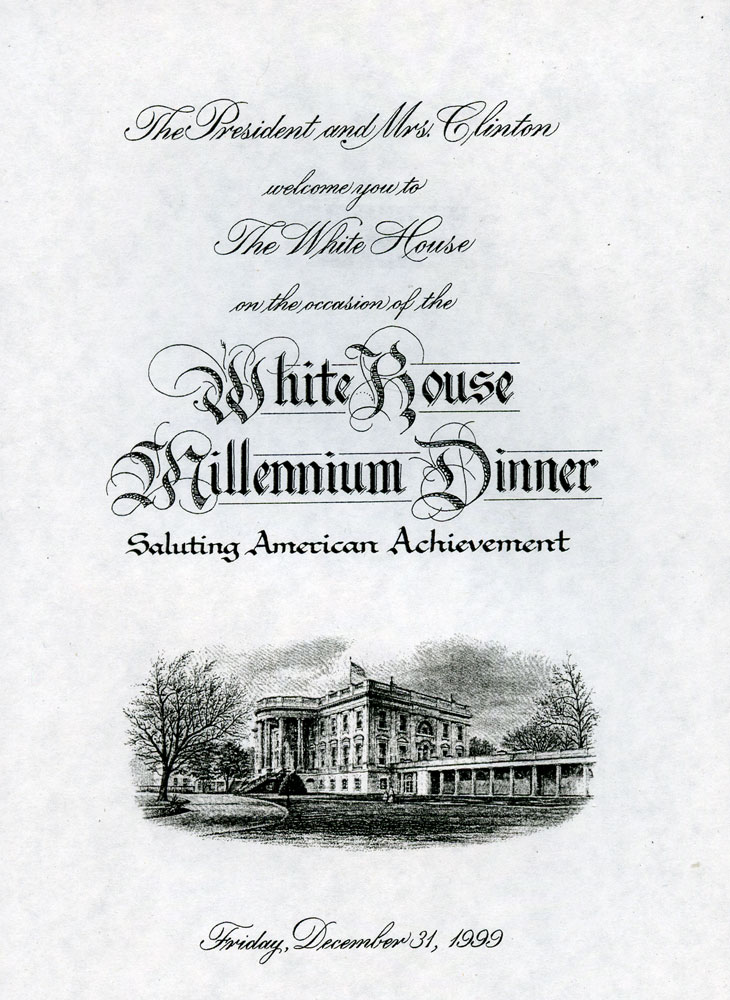 The President and Mrs. Clinton
welcome you to
The White House
on the occasion of the
White House
Millennium Dinner
Saluting American Achievement
Friday, December 31, 1999